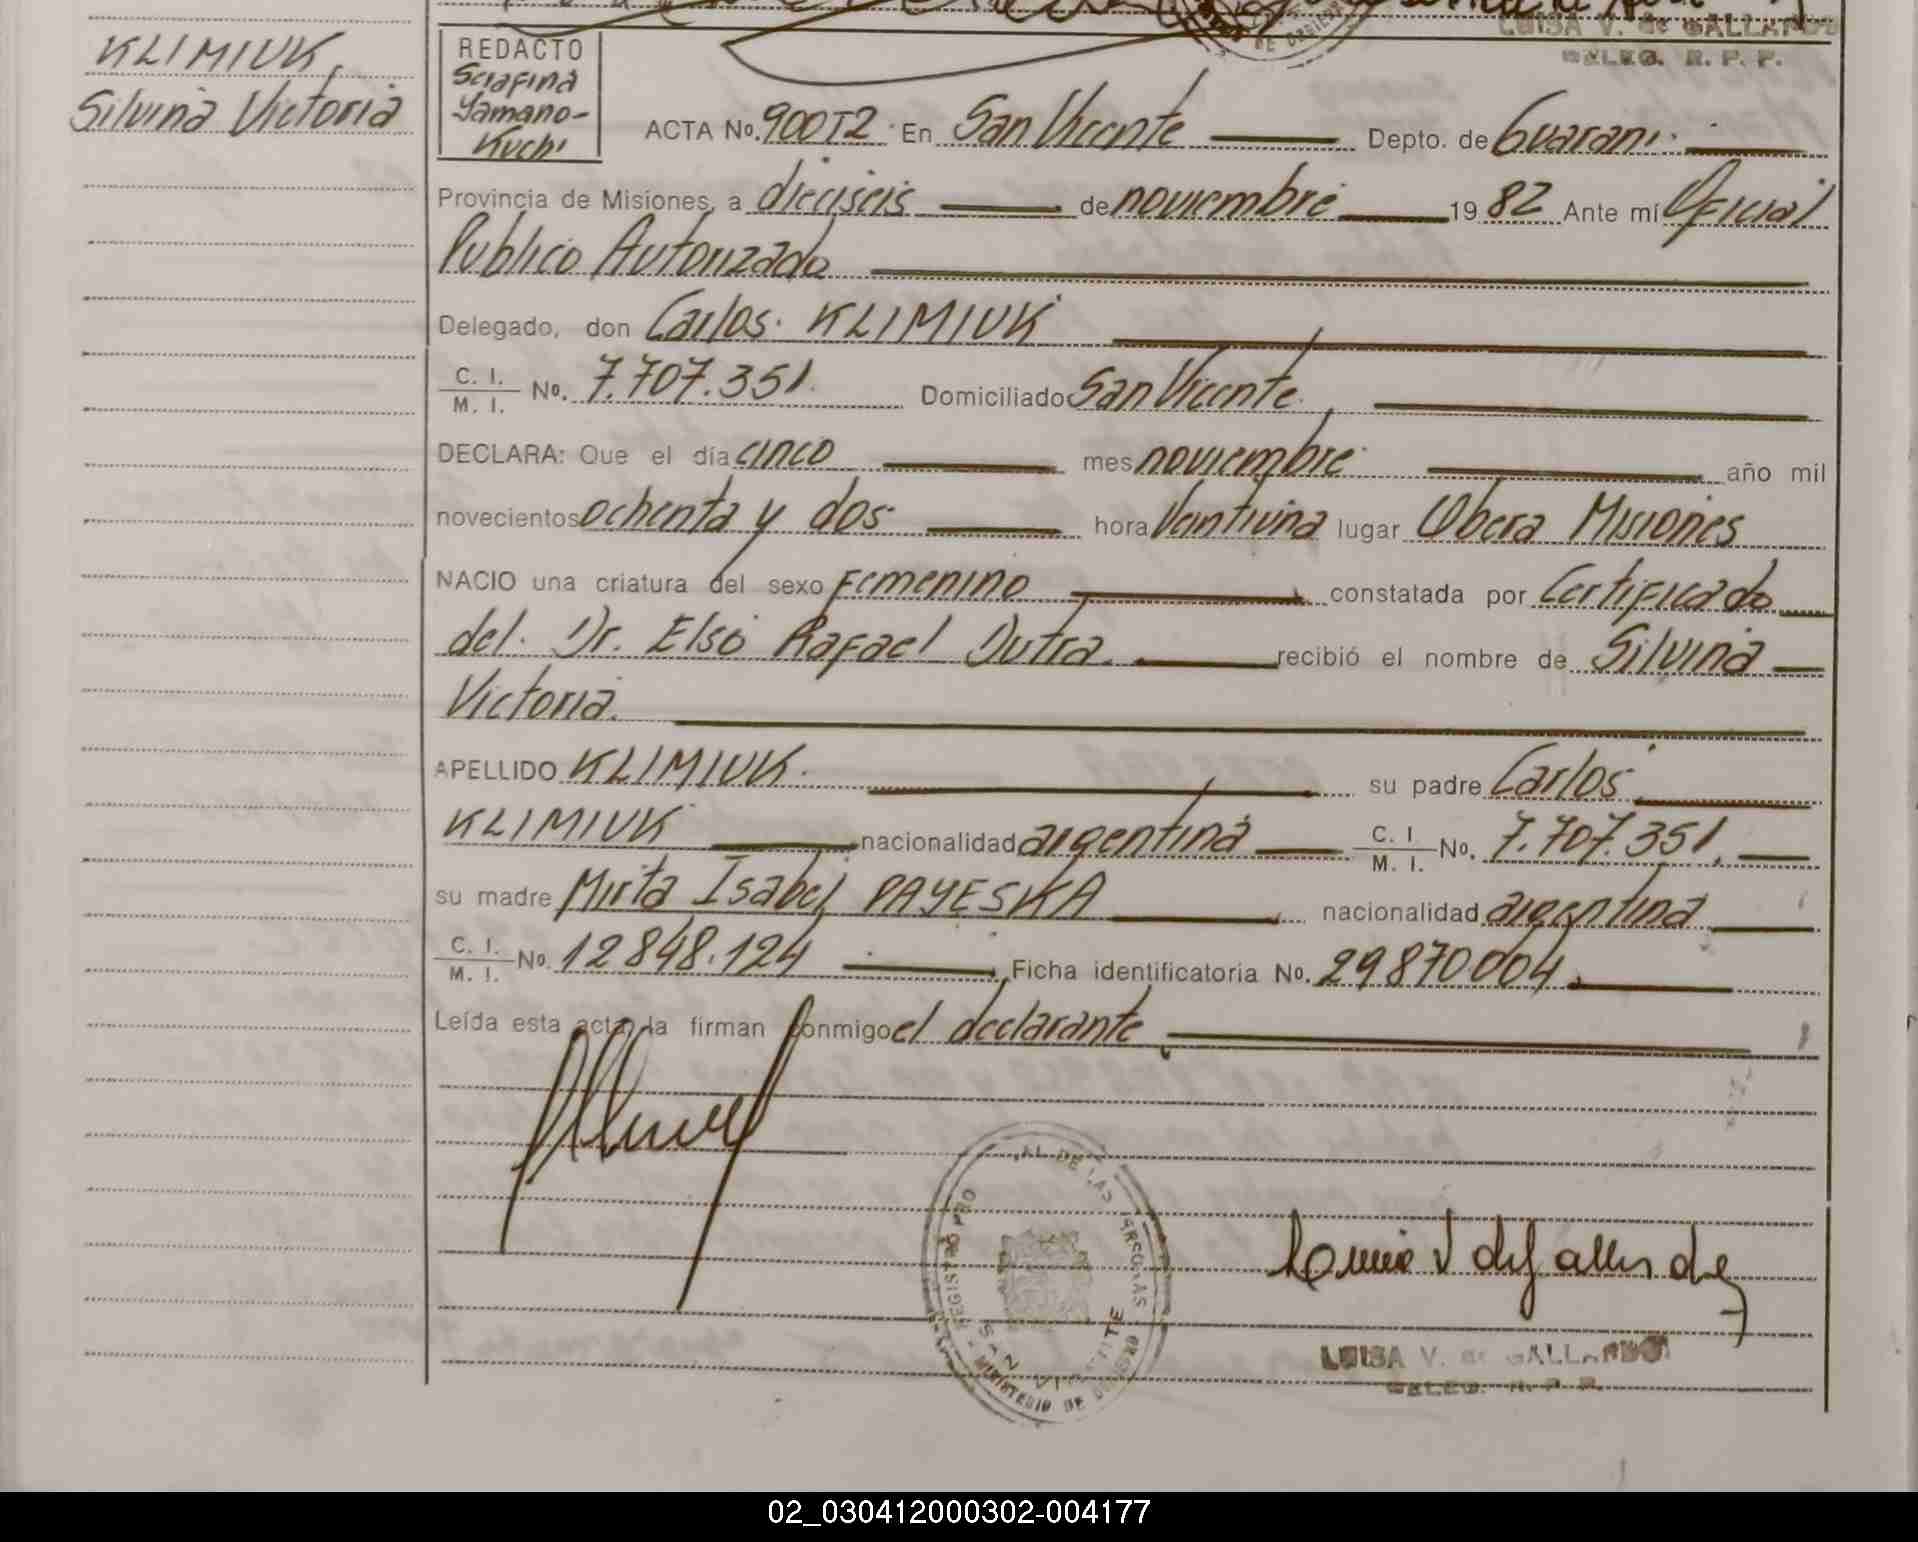 LUISA V. de GALLARDO
DELEG. R. P. P.
KLIMIUK,
Silvina Victoria
REDACTO
Serafina
Yamano-
Kuchi
ACTA No. 900T2 En San Vicente Depto. de Guarani
Provincia de Misiones, a dieciseis de noviembre 19 82 Ante mí Oficial
Publico Autorizado
Delegado, don Carlos KLIMIUK
C. I.
M. I. No. 7.707.351 Domiciliado San Vicente
DECLARA: Que el día cinco mes noviembre año mil
novecientos ochenta y dos hora Veintiuna lugar Obera Misiones
NACIO una criatura del sexo Femenino constatada por Certificado
del Dr. Elso Rafael Dutra. recibió el nombre de Silvina
Victoria.
APELLIDO KLIMIUK. su padre Carlos
KLIMIUK nacionalidad argentina C. I.
M. I. No. 7.707.351.
su madre Mirta Isabel PAYESKA nacionalidad argentina
C. I.
M. I. No. 12848.124 Ficha identificatoria No. 29870004.
Leída esta acta, la firman conmigo el declarante,
DE LAS PERSONAS
SAN VICENTE
MINISTERIO DE GOBIERNO
LUISA V. de GALLARDO
DELEG. R. P. P.
02_030412000302-004177